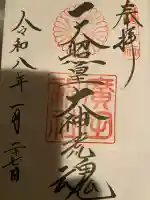 奉拝
天照皇大神荒魂
令和八年一月二十七日